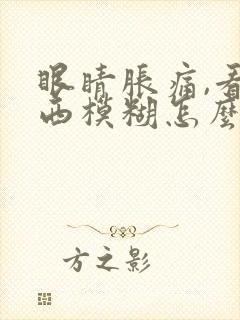 眼睛脹痛,看
西模糊怎麼
方之影